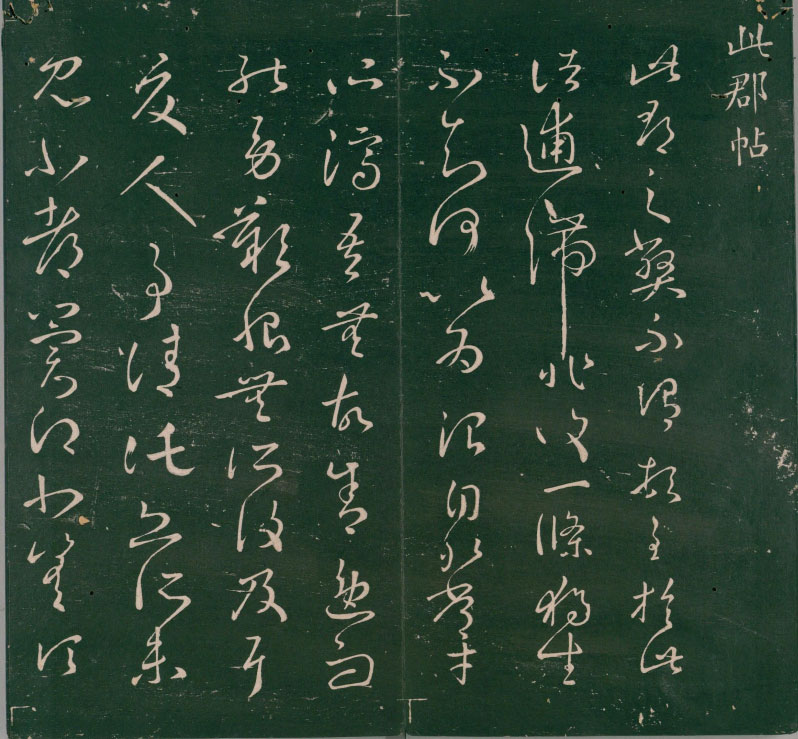 此郡帖
此郡之弊不謂頓至於此
諸逋滯非復一條獨坐
不知何以為治自非常才
所濟吾無故舍逸而
就勞歎恨無所復及耳
夏人事請託亦所未
忍小都冀得小差須